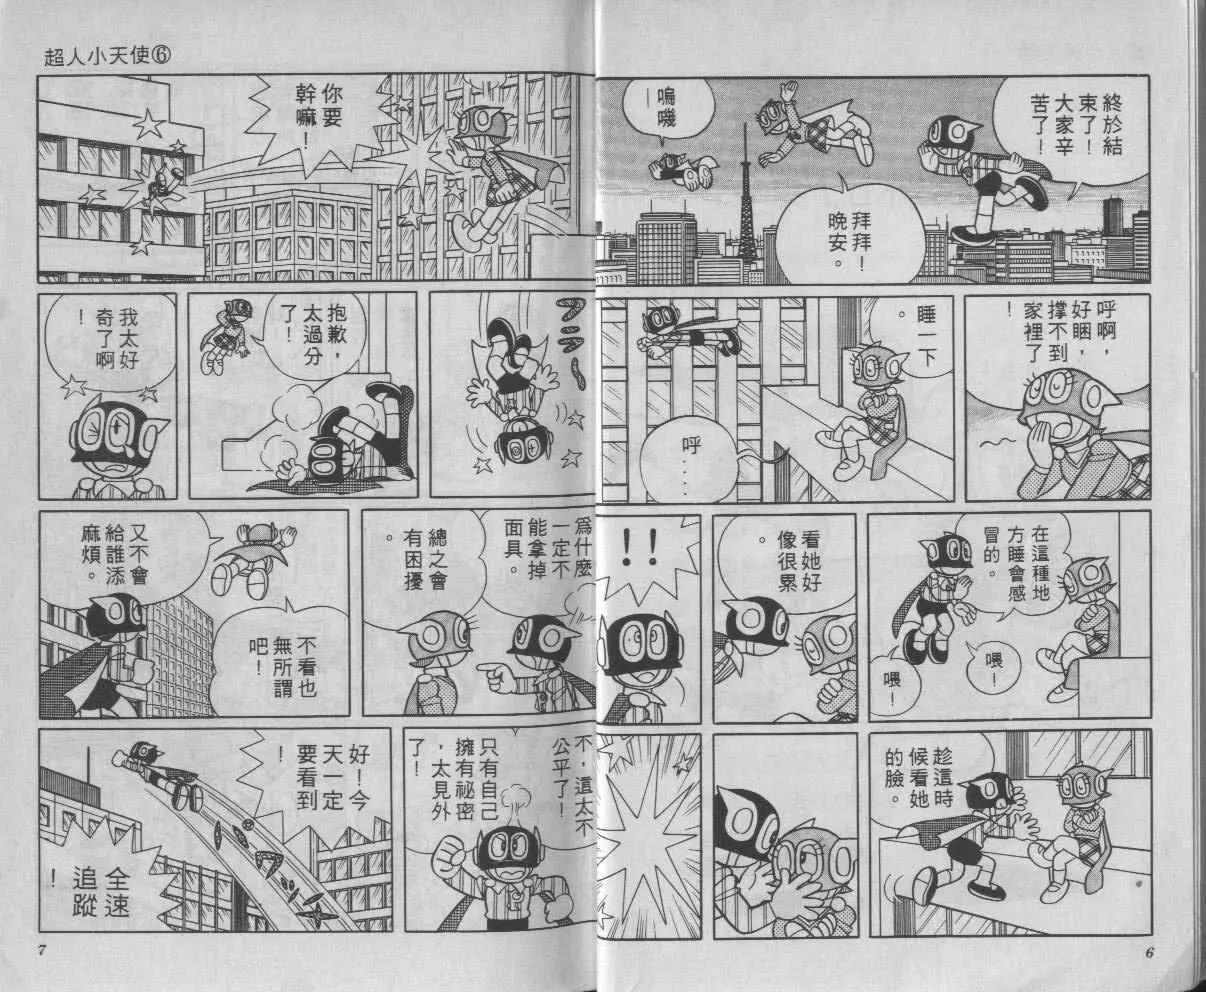 終於結
束了！
大家辛
苦了！
嗚嘰
—
拜拜！
晚安。
呼啊，
好睏，
撐不到
家裡了
！
睡一下
。
呼
....
在這種地
方睡會感
冒的。
喂！
喂！
看她好
像很累
。
!!
趁這時
候看她
的臉。
6
超人小天使⑥
你要
幹嘛！
フラフ〜
抱歉，
太過分
了！
我太好
奇了啊
！
爲什麼
一定不
能拿掉
面具。
總之會
有困擾
。
又不會
給誰添
麻煩。
不看也
無所謂
吧！
不，這太不
公平了！
只有自己
擁有祕密
，太見外
了！
好！今
天一定
要看到
！
全速
追蹤
！
7